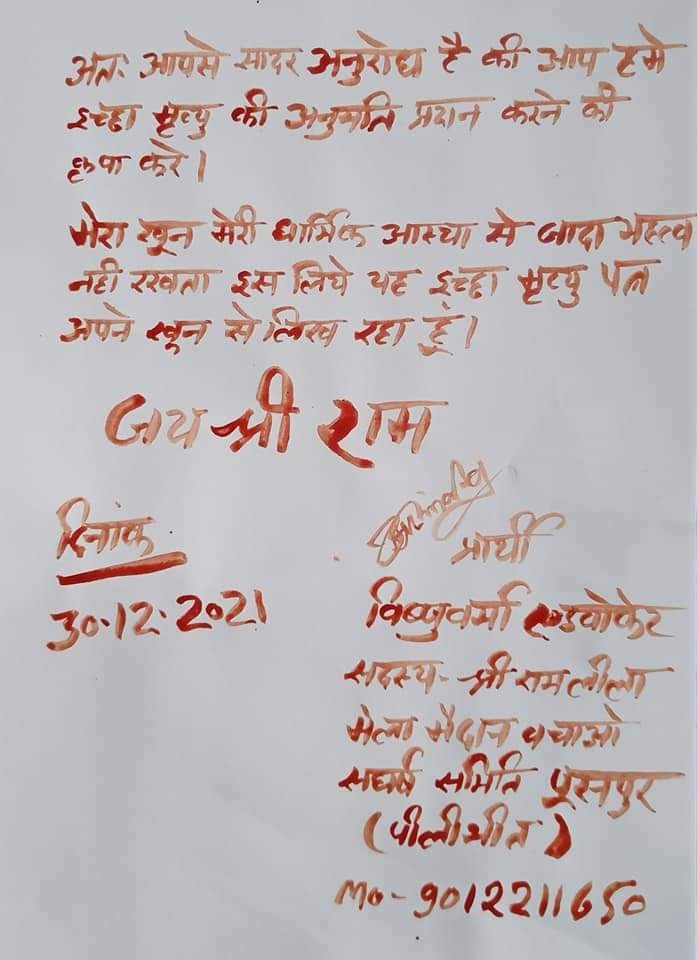 अतः आपसे सादर अनुरोध है की आप हमे
इच्छा मृत्यु की अनुमति प्रदान करने की
कृपा करे।
मेरा खून मेरी धार्मिक आस्था से जादा महत्व
नही रखता इस लिये यह इच्छा मृत्यु पत्र
अपने खून से लिख रहा हूं।
जय श्री राम
दिनांक
30.12.2021
प्रार्थी
विष्णु वर्मा एडवोकेट
सदस्य - श्री राम लीला
मेला मैदान बचाओ
सघर्ष समिति पूरनपुर
(पीलीभीत)
Mo - 9012211650